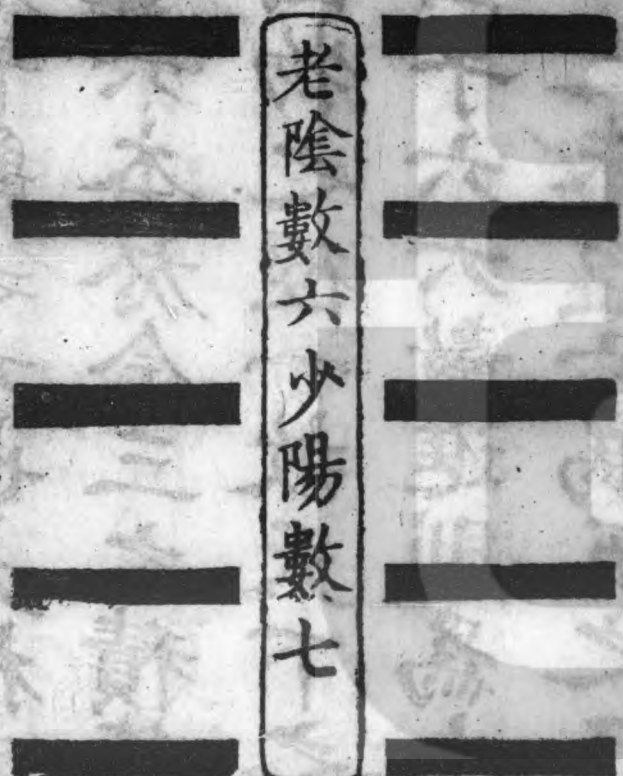 老陰數六少陽數七